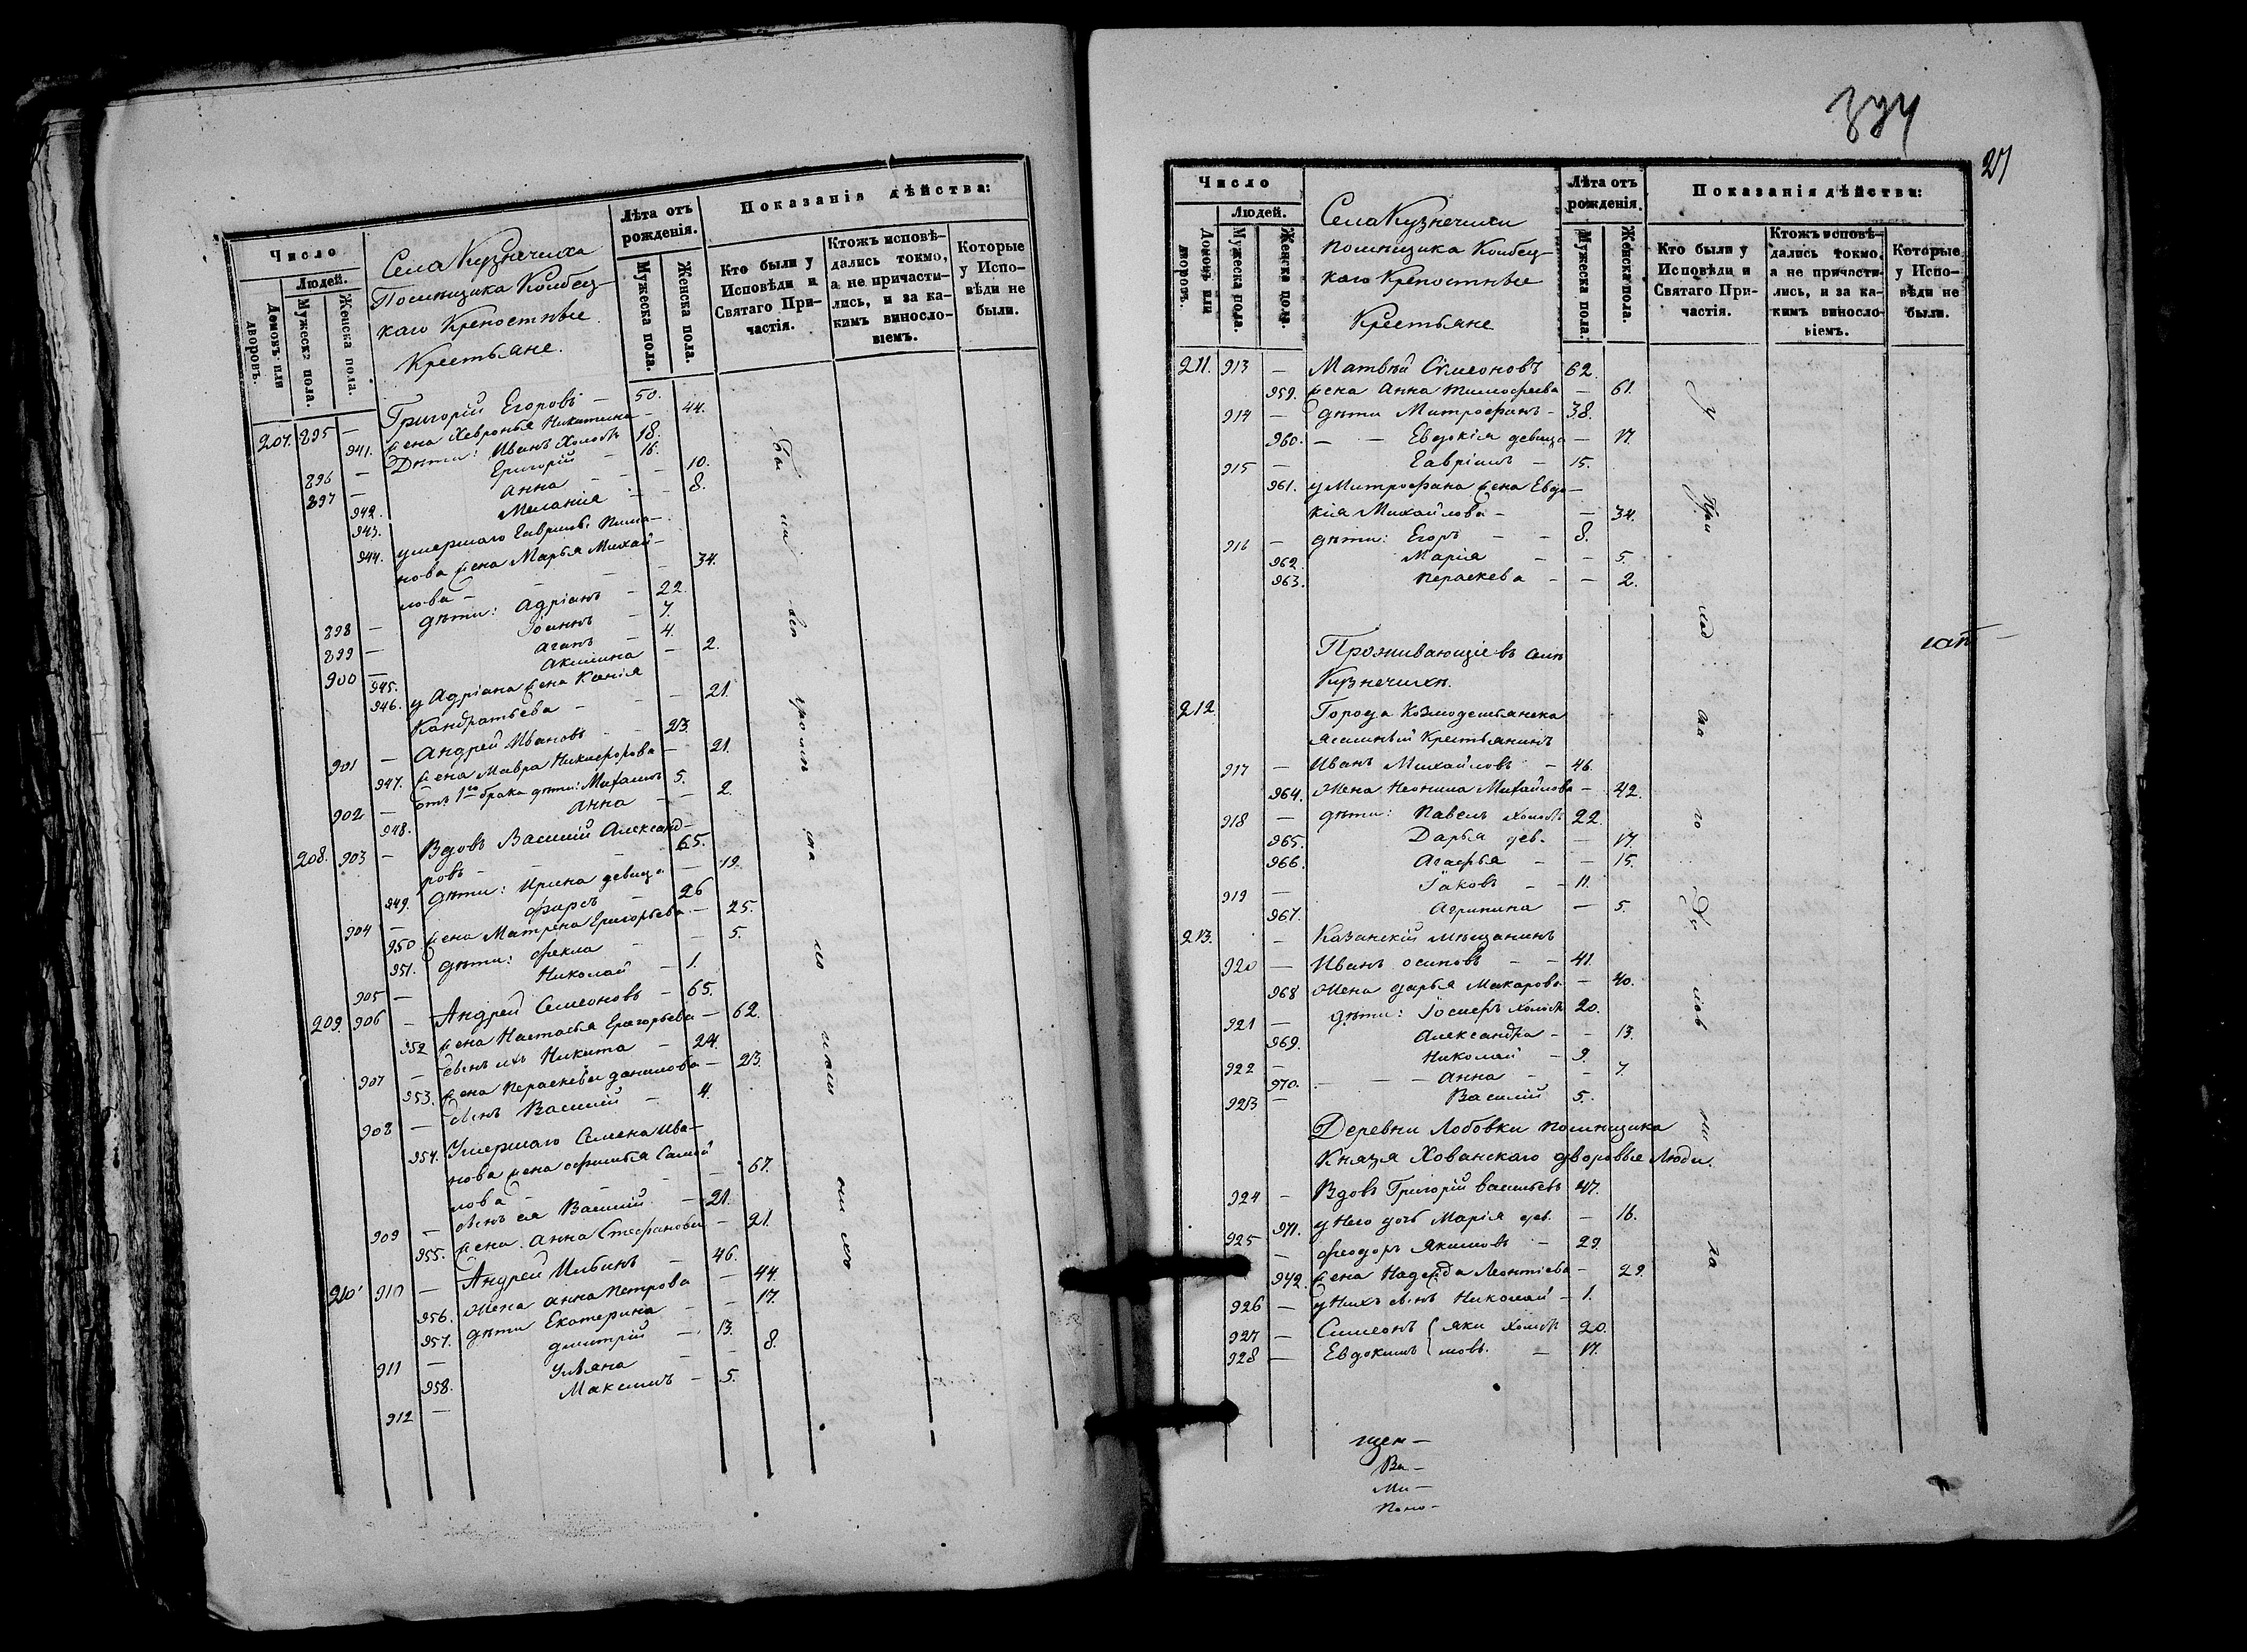 Число
Людей.
Домовъ или дворовъ.
Мужеска пола.
Женска пола.
Села Кузнечиха
Помѣщика
каго Крепостные
Крестьяне.
Лѣта отъ рожденія.
Мужеска пола.
Женска пола.
Показанія дѣйства:
Кто были у Исповѣди и Святаго Причастія.
Ктожъ исповѣдались токмо, а не причастились, и за какимъ винословіемъ.
Которые у Исповѣди не были.
207. 895 — Григорій Егоровъ — 50.
941. жена Хевронья Никитина — 44.
896 — Дѣти: Иванъ холостъ 18.
897 — Григорій — 16.
942. Анна — — 10.
943. Меланія — — 8.
944. умершаго Гавріила
нова жена Марья Михай-
лова — — — 34.
898 — дѣти: Адріанъ — 22.
899 — Іоаннъ — 7.
900 — Агапъ — 4.
945. Акилина — 2.
946. у Адріана жена Ксенія
Кондратьева — — 21.
901 — Андрей Ивановъ — 23.
947. жена Мавра Никифорова — 21.
902 — отъ 1го брака дѣти: Михаилъ 5.
948. Анна — — 2.
208. 903 — Вдовъ Василій Александ-
ровъ — — 65.
949. дѣти: Ирина девица — 19.
904 — Фирсъ — 26
950. жена Матрена Григорьева — 25.
951. дѣти: Фекла — — 5.
905 — Николай — 1.
209. 906 — Андрей Семеоновъ — 65.
952 жена Настасья Григорьева — 62.
907 — сынъ ихъ Никита — 24.
953. жена Параскева Данилова — 23.
908 — сынъ Василій — 4.
954. Умершаго Семена Ива-
нова жена Офимья Самой
лова — — — 67.
909 — сынъ ея Василій — 21.
955. жена Анна Стефанова — 21.
210. 910 — Андрей Ильинъ — 46.
956. жена Анна Петрова — 44.
957. дѣти Екатерина — — 17.
911 — Дмитрій — 13.
958. Ульяна — — 8.
912 — Максимъ — 5.
374
27
Число
Людей.
Домовъ или дворовъ.
Мужеска пола.
Женска пола.
Села Кузнечихи
помѣщика
каго Крепостные
Крестьяне
Лѣта отъ рожденія.
Мужеска пола.
Женска пола.
Показанія дѣйства:
Кто были у Исповѣди и Святаго Причастія.
Ктожъ исповѣдались токмо, а не причастились, и за какимъ винословіемъ.
Которые у Исповѣди не были.
211. 913 — Матвѣй Симеоновъ 62.
959. жена Анна Тимофеева — 61.
914 — дѣти Митрофанъ — 38.
960. — — Евдокія девица — 17.
915 — Гавріилъ — 15.
961. у Митрофана жена Евдо-
кія Михайлова — — 34.
916 — дѣти: Егоръ — — 8.
962. Марія — — 5.
963. Параскева — — 2.
Проживающіе въ селѣ
Кузнечихѣ.
212. Города Козмодемьянска
ясашный Крестьянинъ
917 — Иванъ Михайловъ — 46.
964. Жена Неонила Михайлова — 42.
918 — дѣти: Павелъ холостъ 22.
965. Дарья дев. — 17.
966. Агафья — — 15.
919 — Іаковъ — — 11.
967. Агрипина — 5.
213. — Казанскій мѣщанинъ
920 — Иванъ Осиповъ — — 41.
968 Жена Дарья Макарова — 40.
921 — дѣти: Іосифъ холостъ 20.
969. Александра — — 13.
922 — Николай — 9.
970. — — — Анна — — 7.
923 — Василій 5.
Деревни Лобовки помѣщика
Князя Хованскаго дворовые люди.
924 — Вдовъ Григорій Васильевъ 47.
971. у него дочь Марія дев. — 16.
925 — Феодоръ Якимовъ — 29.
972. жена Надежда Леонтіева — 29.
926 — у нихъ сынъ Николай — 1.
927 — Симеонъ яки холостъ 20.
928 — Евдокимъ мовъ. — 17.
щен —
Ва —
Ми —